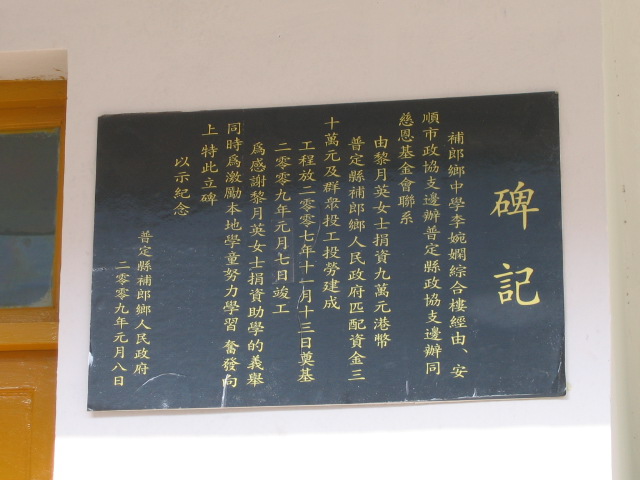 碑記
補郎鄉中學李婉嫻綜合樓經由、安
順市政協支邊辦普定縣政協支邊辦同
慈恩基金會聯系
由黎月英女士捐資九萬元港幣
普定縣補郎鄉人民政府匹配資金三
十萬元及群眾投工投勞建成
工程放二零零七年十一月十三日奠基
二零零九年元月七日竣工
為感謝黎月英女士捐資助學的義舉
同時為激勵本地學童努力學習 奮發向
上 特此立碑
以示紀念
普定縣補郎鄉人民政府
二零零九年元月八日